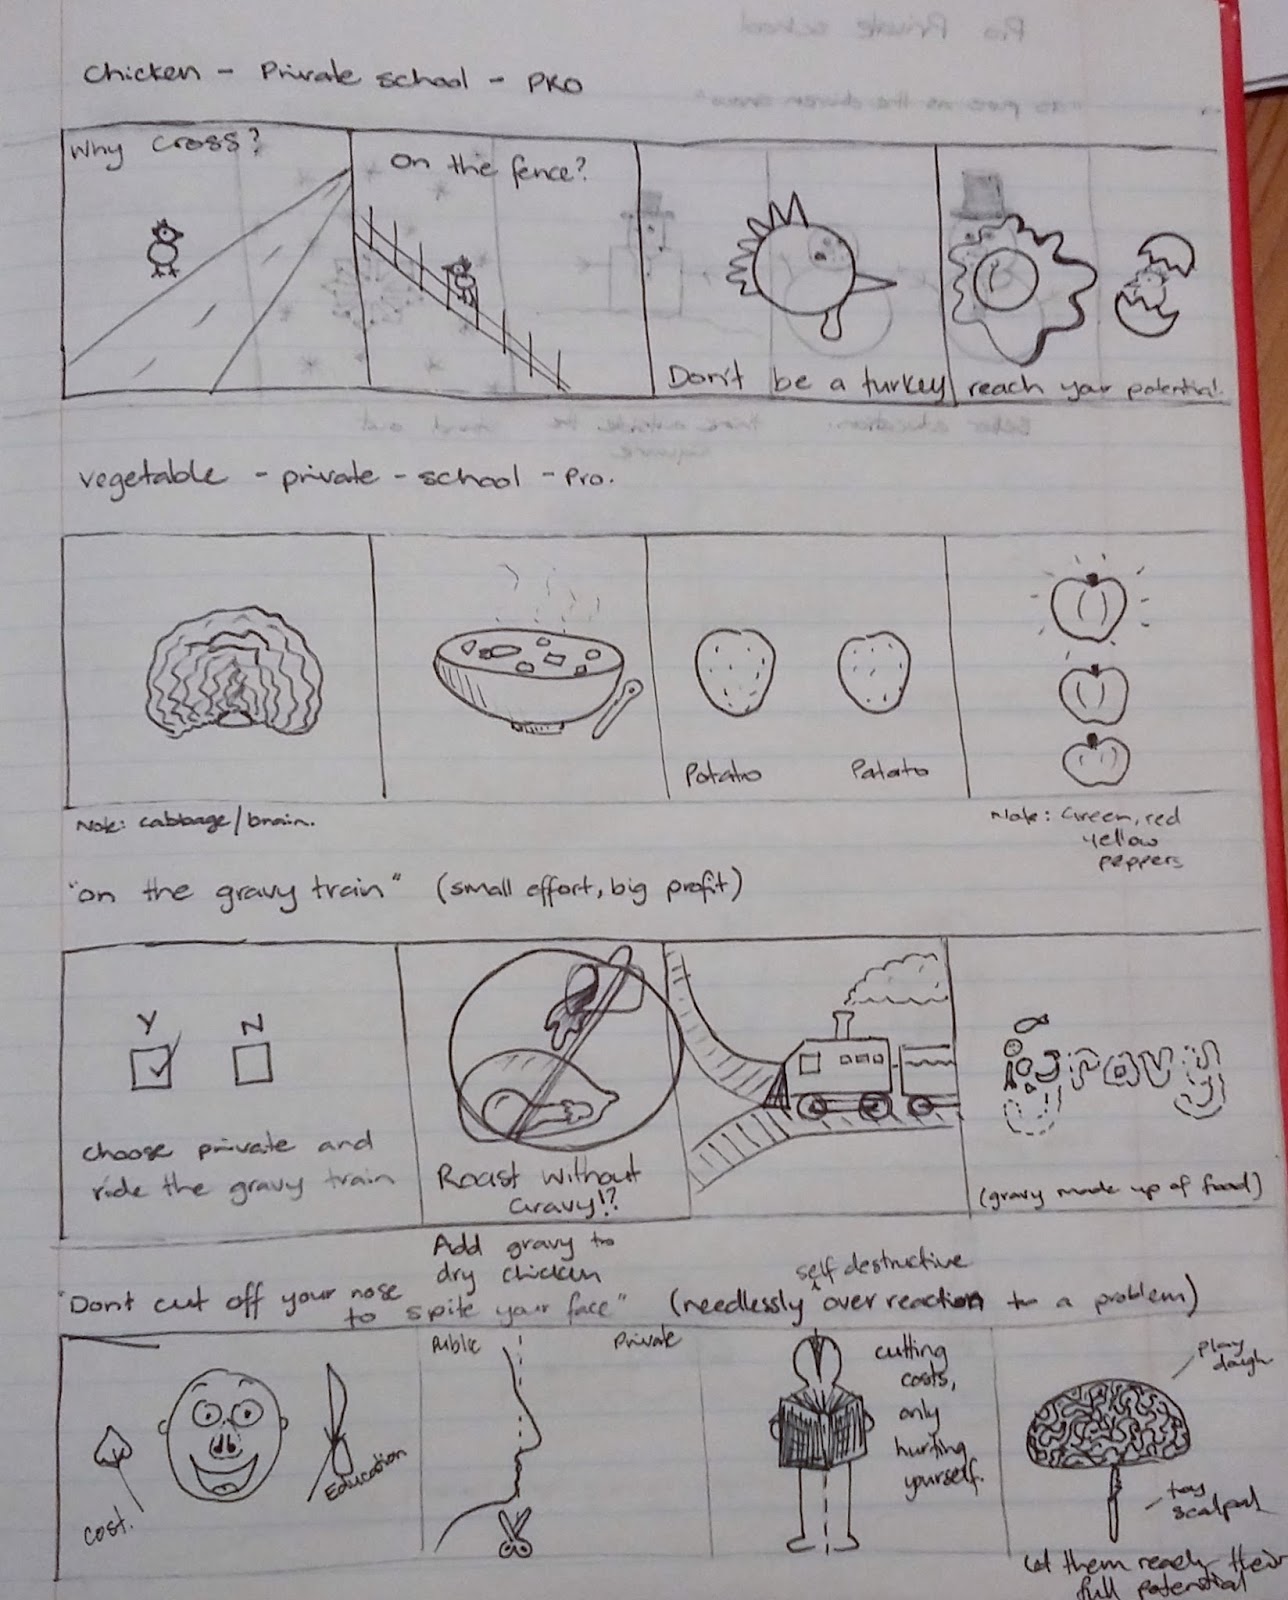 Chicken - Private school - PRO
Why cross?
On the fence?
Don't be a turkey
reach your potential.
vegetable - private - school - Pro.
Potato
Patato
Note: cabbage/brain.
Note: Green, red
yellow
peppers
"on the gravy train" (small effort, big profit)
Y
N
choose private and
ride the gravy train
Roast without
Gravy!?
gravy
(gravy made up of food)
Add gravy to
dry chicken
"Dont cut off your nose
to spite your face"
self destructive
(needlessly over reaction to a problem)
cost.
Education
Public
Private
cutting
costs,
only
hurting
yourself.
play
dough
toy
scalpal
Let them reach their
full potential